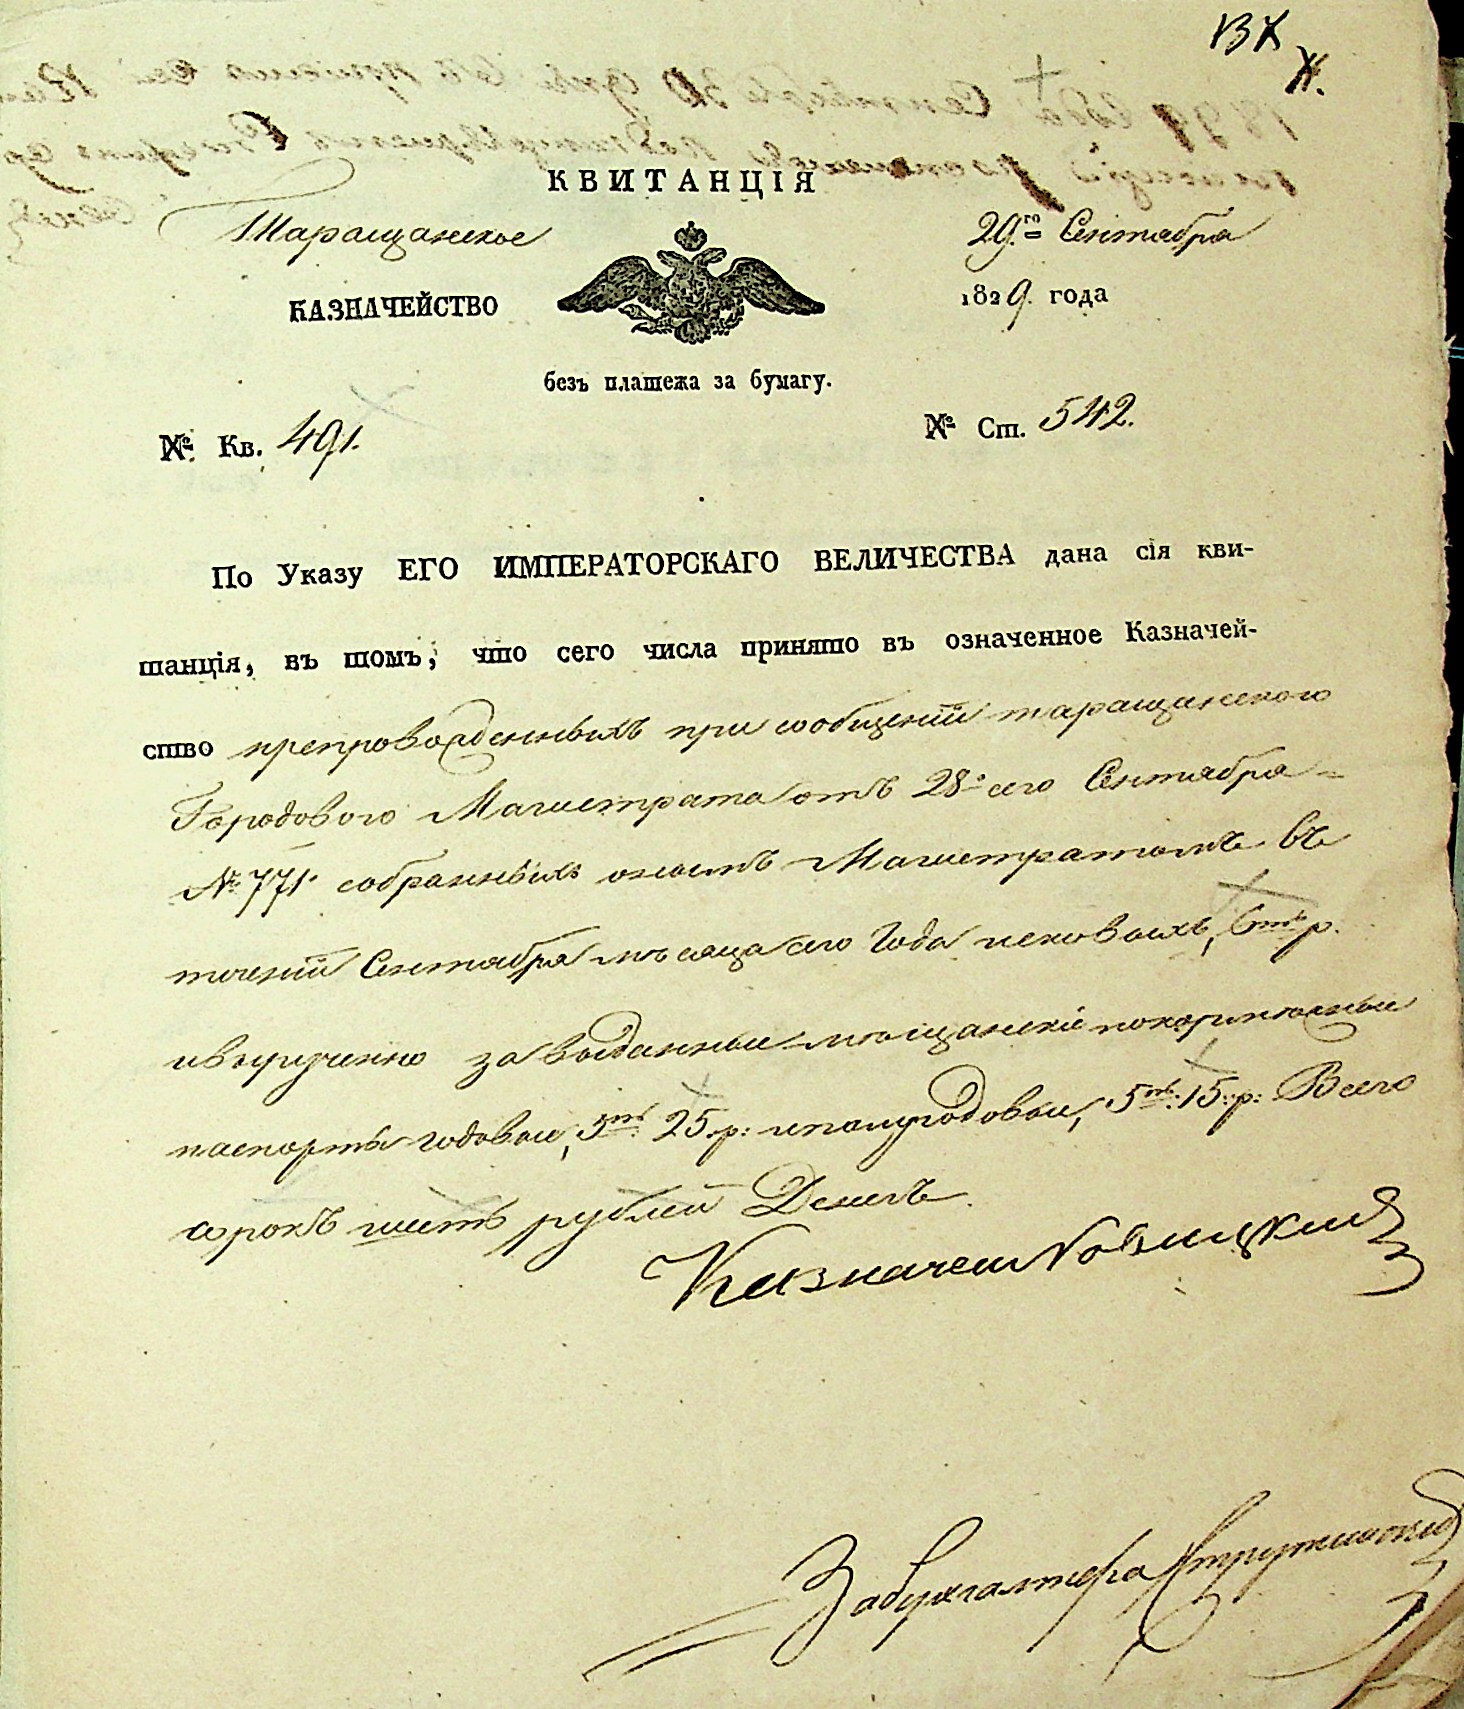 КВИТАНЦІЯ
Таращанское
29.го Сентября
КАЗНАЧЕЙСТВО
1829. года
безъ платежа за бумагу.
№ Кв. 491.
№ Ст. 542.
По Указу ЕГО ИМПЕРАТОРСКАГО ВЕЛИЧЕСТВА дана сія кви-
танція, въ томъ, что сего числа принято въ означенное Казначей-
ство препровожденныхъ при сообщеніи таращанского
Городового Магистрата отъ 28о сего Сентября
№ 771. собранныхъ онымъ Магистратомъ въ
теченіи Сентября мѣсяца сего года исковыхъ, 6ть р.
и вырученно за выданные мѣщанскіе покормежные
паспорты годовые, 5ть 25 р: и полугодовые, 5ть 15: р: Всего
сорокъ шесть рублей Денегъ.
Казначей Новицкий
За бухгалтера